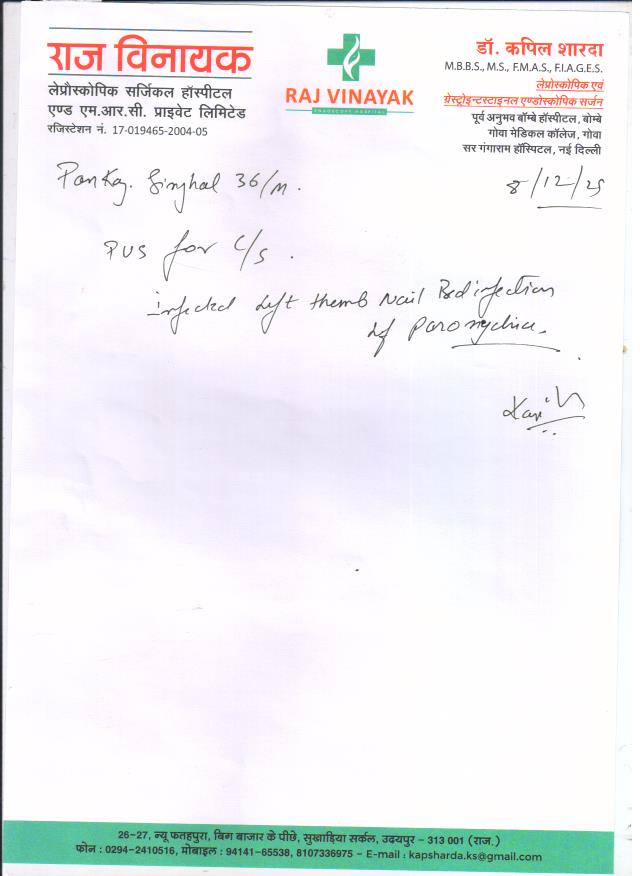 राज विनायक
लेप्रौस्कोपिक सर्जिकल हॉस्पीटल
एण्ड एम.आर.सी. प्राइवेट लिमिटेड
रजिस्टेशन नं. 17-019465-2004-05
RAJ VINAYAK
ENDOSCOPY HOSPITAL
डॉ. कपिल शारदा
M.B.B.S., M.S., F.M.A.S., F.I.A.G.E.S.
लेप्रोस्कोपिक एवं
ग्रेस्ट्रोइन्टस्टाइनल एण्डोस्कोपिक सर्जन
पूर्व अनुभव बॉम्बे हॉस्पीटल, बोम्बे
गोवा मेडिकल कॉलेज, गोवा
सर गंगाराम हॉस्पिटल, नई दिल्ली
Pankaj. Singhal 36/m.
8/12/25
PUS for C/S.
infected left thumb Nail Bed infection
Paronychia.
26-27, न्यू फतहपुरा, बिग बाजार के पीछे, सुखाड़िया सर्कल, उदयपुर - 313 001 (राज.)
फोन : 0294-2410516, मोबाइल : 94141-65538, 8107336975 - E-mail : kapsharda.ks@gmail.com